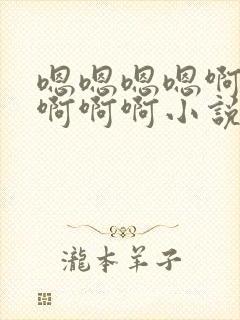 嗯嗯嗯嗯啊
啊啊啊小说
瀧本羊子